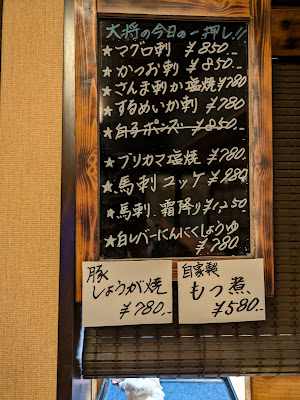 大将の今日の一押し!!
★マグロ刺 ¥850.-
★かつお刺 ¥850.-
★さんま刺か塩焼 ¥780
★するめいか刺 ¥780
★白子ポンズ ¥850.-
★ブリカマ塩焼 ¥780.
★馬刺 ユッケ ¥880
★馬刺 霜降り ¥1,250
★白レバーにんにくしょうゆ
¥780
豚
しょうが焼
¥780.-
自家製
もつ煮
¥580.-